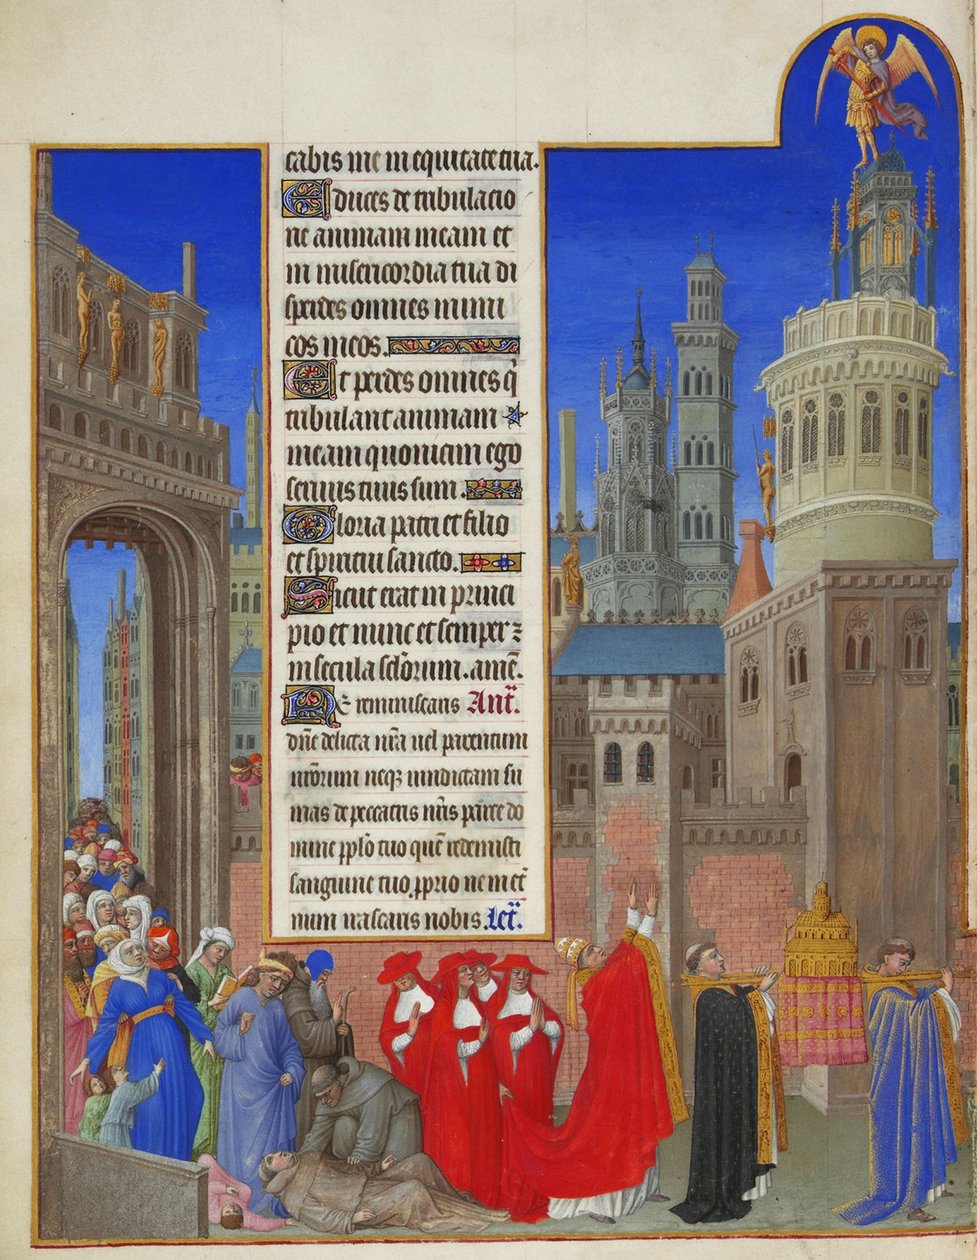 cabis me in equitate tua.
Educes de tribulacio
ne animam meam et
in misericordia tua di
sperdes omnes inimi
cos meos.
Et perdes omnes q̄
tribulant animam
meam quoniam ego
seruus tuus sum.
Gloria patri et filio
et spiritui sancto.
Sicut erat in princi
pio et nunc et semper ⁊
in secula sc̄lorum. amē.
Ne reminiscaris Ant̄.
dn̄e delicta nr̄a uel parentum
nr̄orum neqꝫ uindictam su
mas de peccatis nr̄is parce do
mine ppl̄o tuo quē redemisti
sanguine tuo ꝓprio ne inet̄
num irascaris nobis. Let̄.